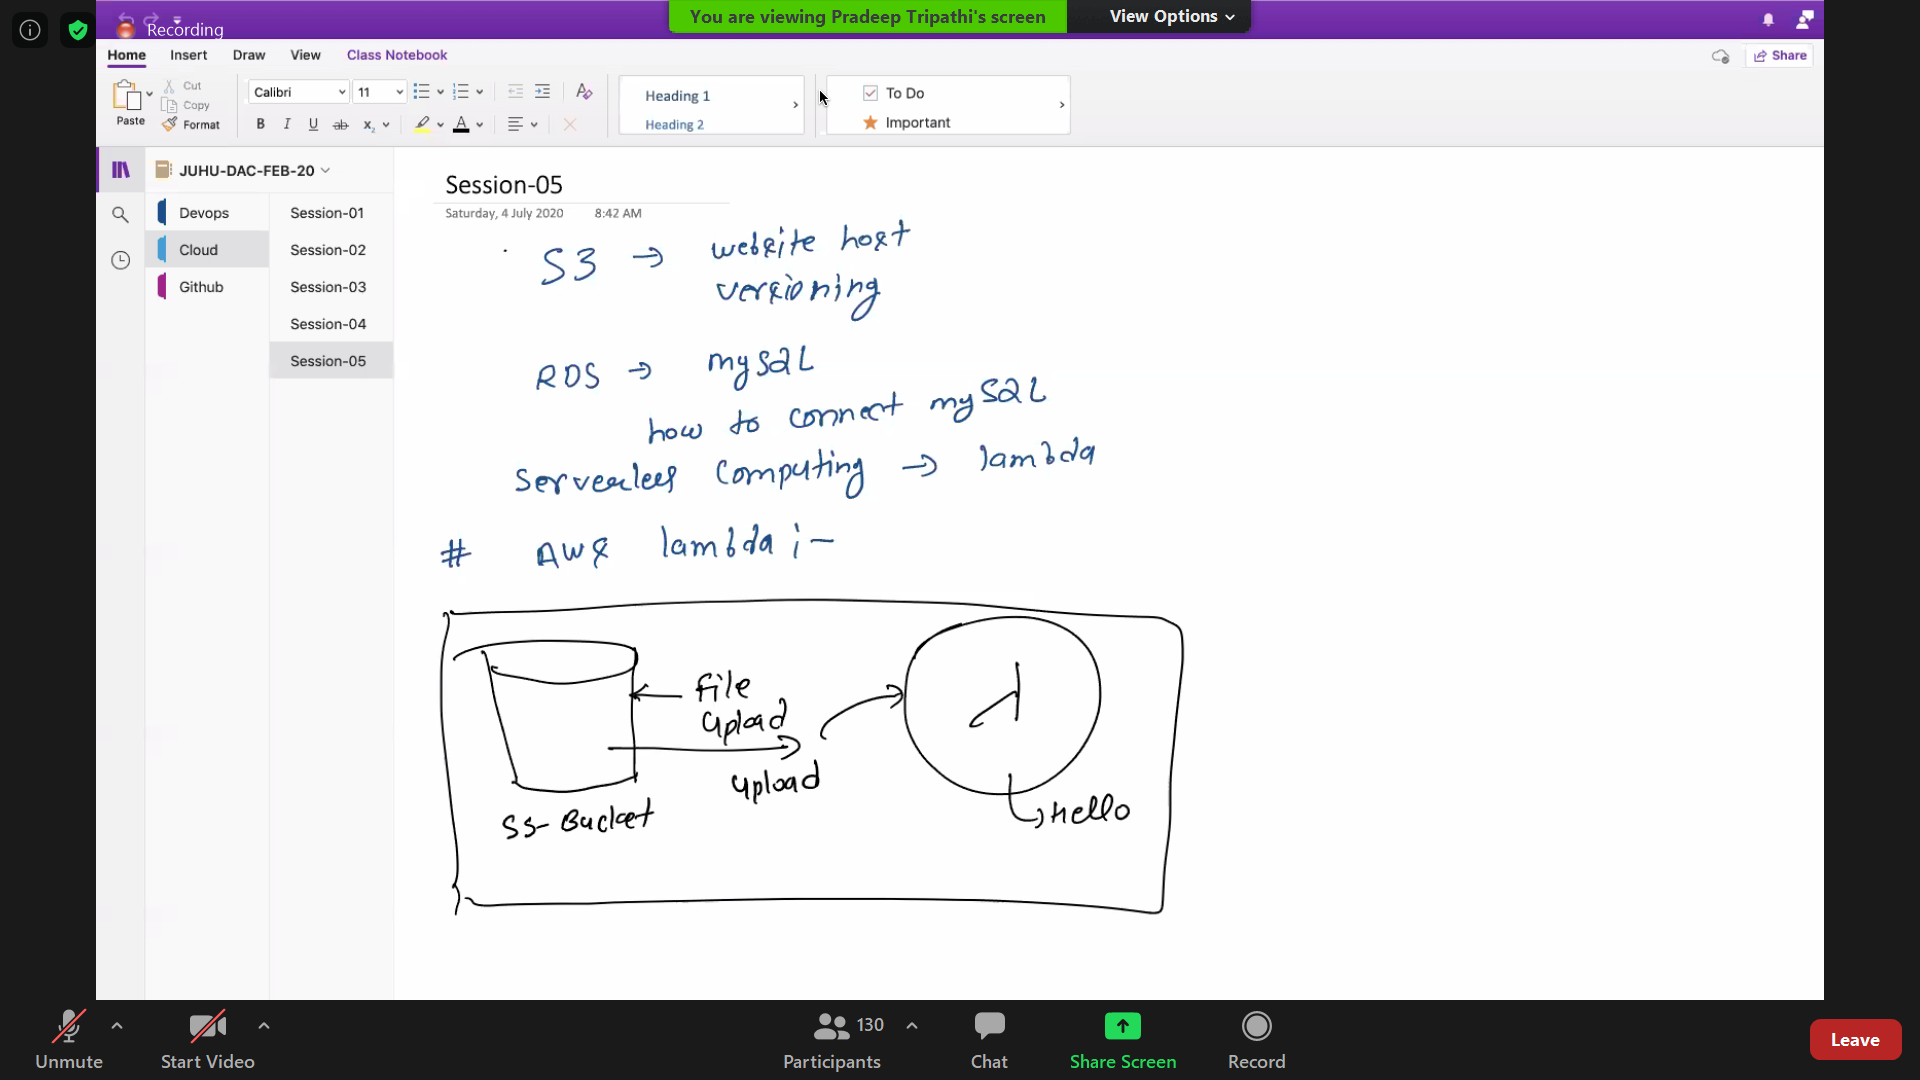 You are viewing Pradeep Tripathi's screen
View Options
Recording
Home Insert Draw View Class Notebook
Share
Paste
Cut
Copy
Format
Calibri 11
B I U ab x₂ A
Heading 1
Heading 2
To Do
Important
JUHU-DAC-FEB-20
Devops
Cloud
Github
Session-01
Session-02
Session-03
Session-04
Session-05
Session-05
Saturday, 4 July 2020 8:42 AM
S3 → website host
versioning
RDS → mySQL
how to connect mySQL
Serverless Computing → lambda
# AWS lambda ;-
file
upload
upload
λ
Hello
S3-Bucket
Unmute
Start Video
130
Participants
Chat
Share Screen
Record
Leave